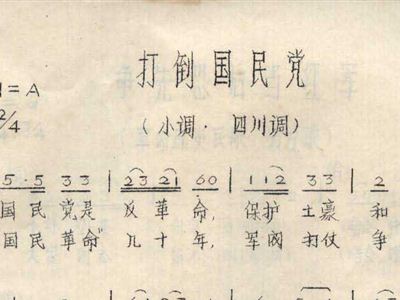 打倒国民党
1=A
2/4
(小调·四川调)
5·5 33 | 23 21 60 | 112 33 | 2
国民 党是 反革命, 保护 土豪 和
国民 革命" 几十年, 军阀 打仗 争